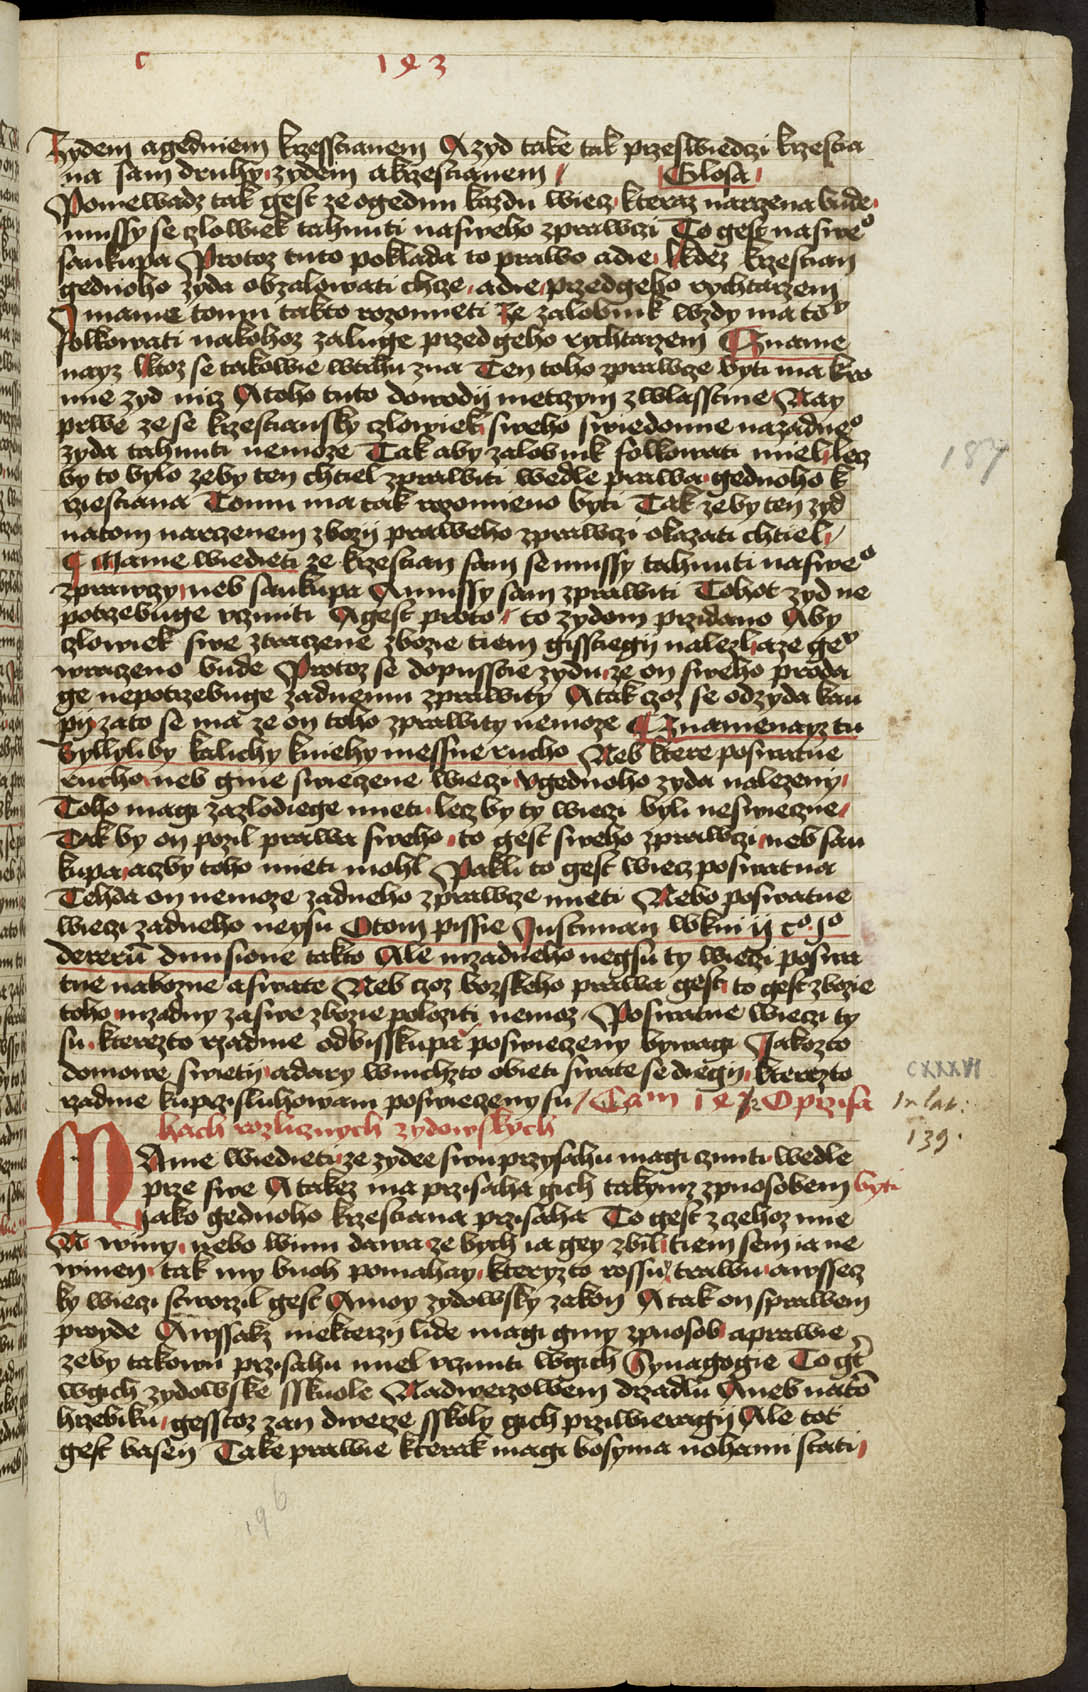 c 193
zydem agedniem krzesstianem A zyd take tak przeswiedczi krzestia
na sam druhy zydem akrzestianem Glosa
Poniewadz tak gest ze ogednu kazdu wiecz kteraz narzena bude
mussy se czlowiek tahnuti nasweho zprawczi To gest naswe°
saukupa Protoz tuto poklada to prawo adie Kdez krzestian
gednoho zyda obzalowati chcze adie przed geho rychtarzem
mame tomu takto rozomieti Ze zalobnik wzdy ma to°
folkowati nakohoz zaluge przed geho rychtarzem Czname
nayz Ktoz se takowie wtrhu zna Ten toho zprawcze byti ma kro
mie zyd nicz A toho tuto dowodij nietczym zwlasstnie Nay
prwe ze se krzestiansky czlowiek sweho swiedomie nazadne°
zyda tahnuti nemoze Tak aby zalobnik folkowati miel lecz
by to bylo zeby ten chtiel zprawiti wedle prawa gednoho k
rziestiana Tomu ma tak rozomieno byti Tak zeby ten zyd
natom narczenem zbozij praweho zprawczi okazati chtiel
Mame wiedieti ze krzestian sam se mussy tahnuti naswe°
zprawczy neb saukupa A mussy sam zprawiti Tohot zyd ne
potrzebuge vczniti A gest proto to zydom przidano Aby
czlowiek swe ztraczene zbozie tiem gisstiegij nalezl aze ge°
wraczeno bude Protoz se dopusstie zydu ze on sweho proda
ge nepotrzebuge zadnemu zprawity A tak czoz se odzyda kau
pij zato se ma ze on toho zprawity nemoze Cznamenayz tu
Byllyliby kalichy kniehy messne rucho Neb ktere poswatne
rucho neb gine swieczene wieczi vgednoho zyda nalezeny
Toho magi zazlodiege mieti lecz by ty wieczi byli neswieczne
Tak by on pozil prawa sweho to gest sweho zprawczi neb sau
kupa aczby toho mieti mohl Pakli to gest wiecz poswatna
Tehda on nemoze zadneho zprawcze mieti Nebo poswatne
wieczi zadneho neysu Otom pissie Justinian wkni ij c° j°
dererū diuisione takto Ale nizadneho negsu ty wieczi poswa
tne nabozne aswate Neb czoz bozskeho prawa gest to gest zbozie
toho nizadny zaswe zbozie poloziti nemoz Poswatne wieczi ty
su kterezto rzadnie odbisskupa poswieczeny bywagi Jakozto
domowe swietij adary wnichzto obieti swate se diegij kterezto
rzadnie kuprzisluhowani poswieczeny su Cam O przisa
hach rozlicznych zydowskych
MAme wiedieti ze zydee swu przysahu magi cziniti wedle
prze swe A takez ma przisaha gich takymz zpuosobem byti
jako gednoho krzestiana przisaha To gest zczehoz mie
N winy nebo winu dawa ze bych ia gey zbil tiem sem ia ne
winen tak my buoh pomahay kteryzto rossu trawu awssecz
ky wieczi stworzil gest A moy zydowsky zakon A tak on sprawem
proyde A wssakz niekterzij lide magi giny zpuosob aprawie
zeby takowu przisahu miel vcziniti wgich Synagogie To gt
wgich zydowske sskuole Nadwerzowem drzadlu A neb nato
hrzebiku gesstoz zan dwerze sskoly gich przilwieragij Ale tot
gest basen Take prawie kterak magi bosyma nohami stati
187
CXXXVI
In lat:
139.
196